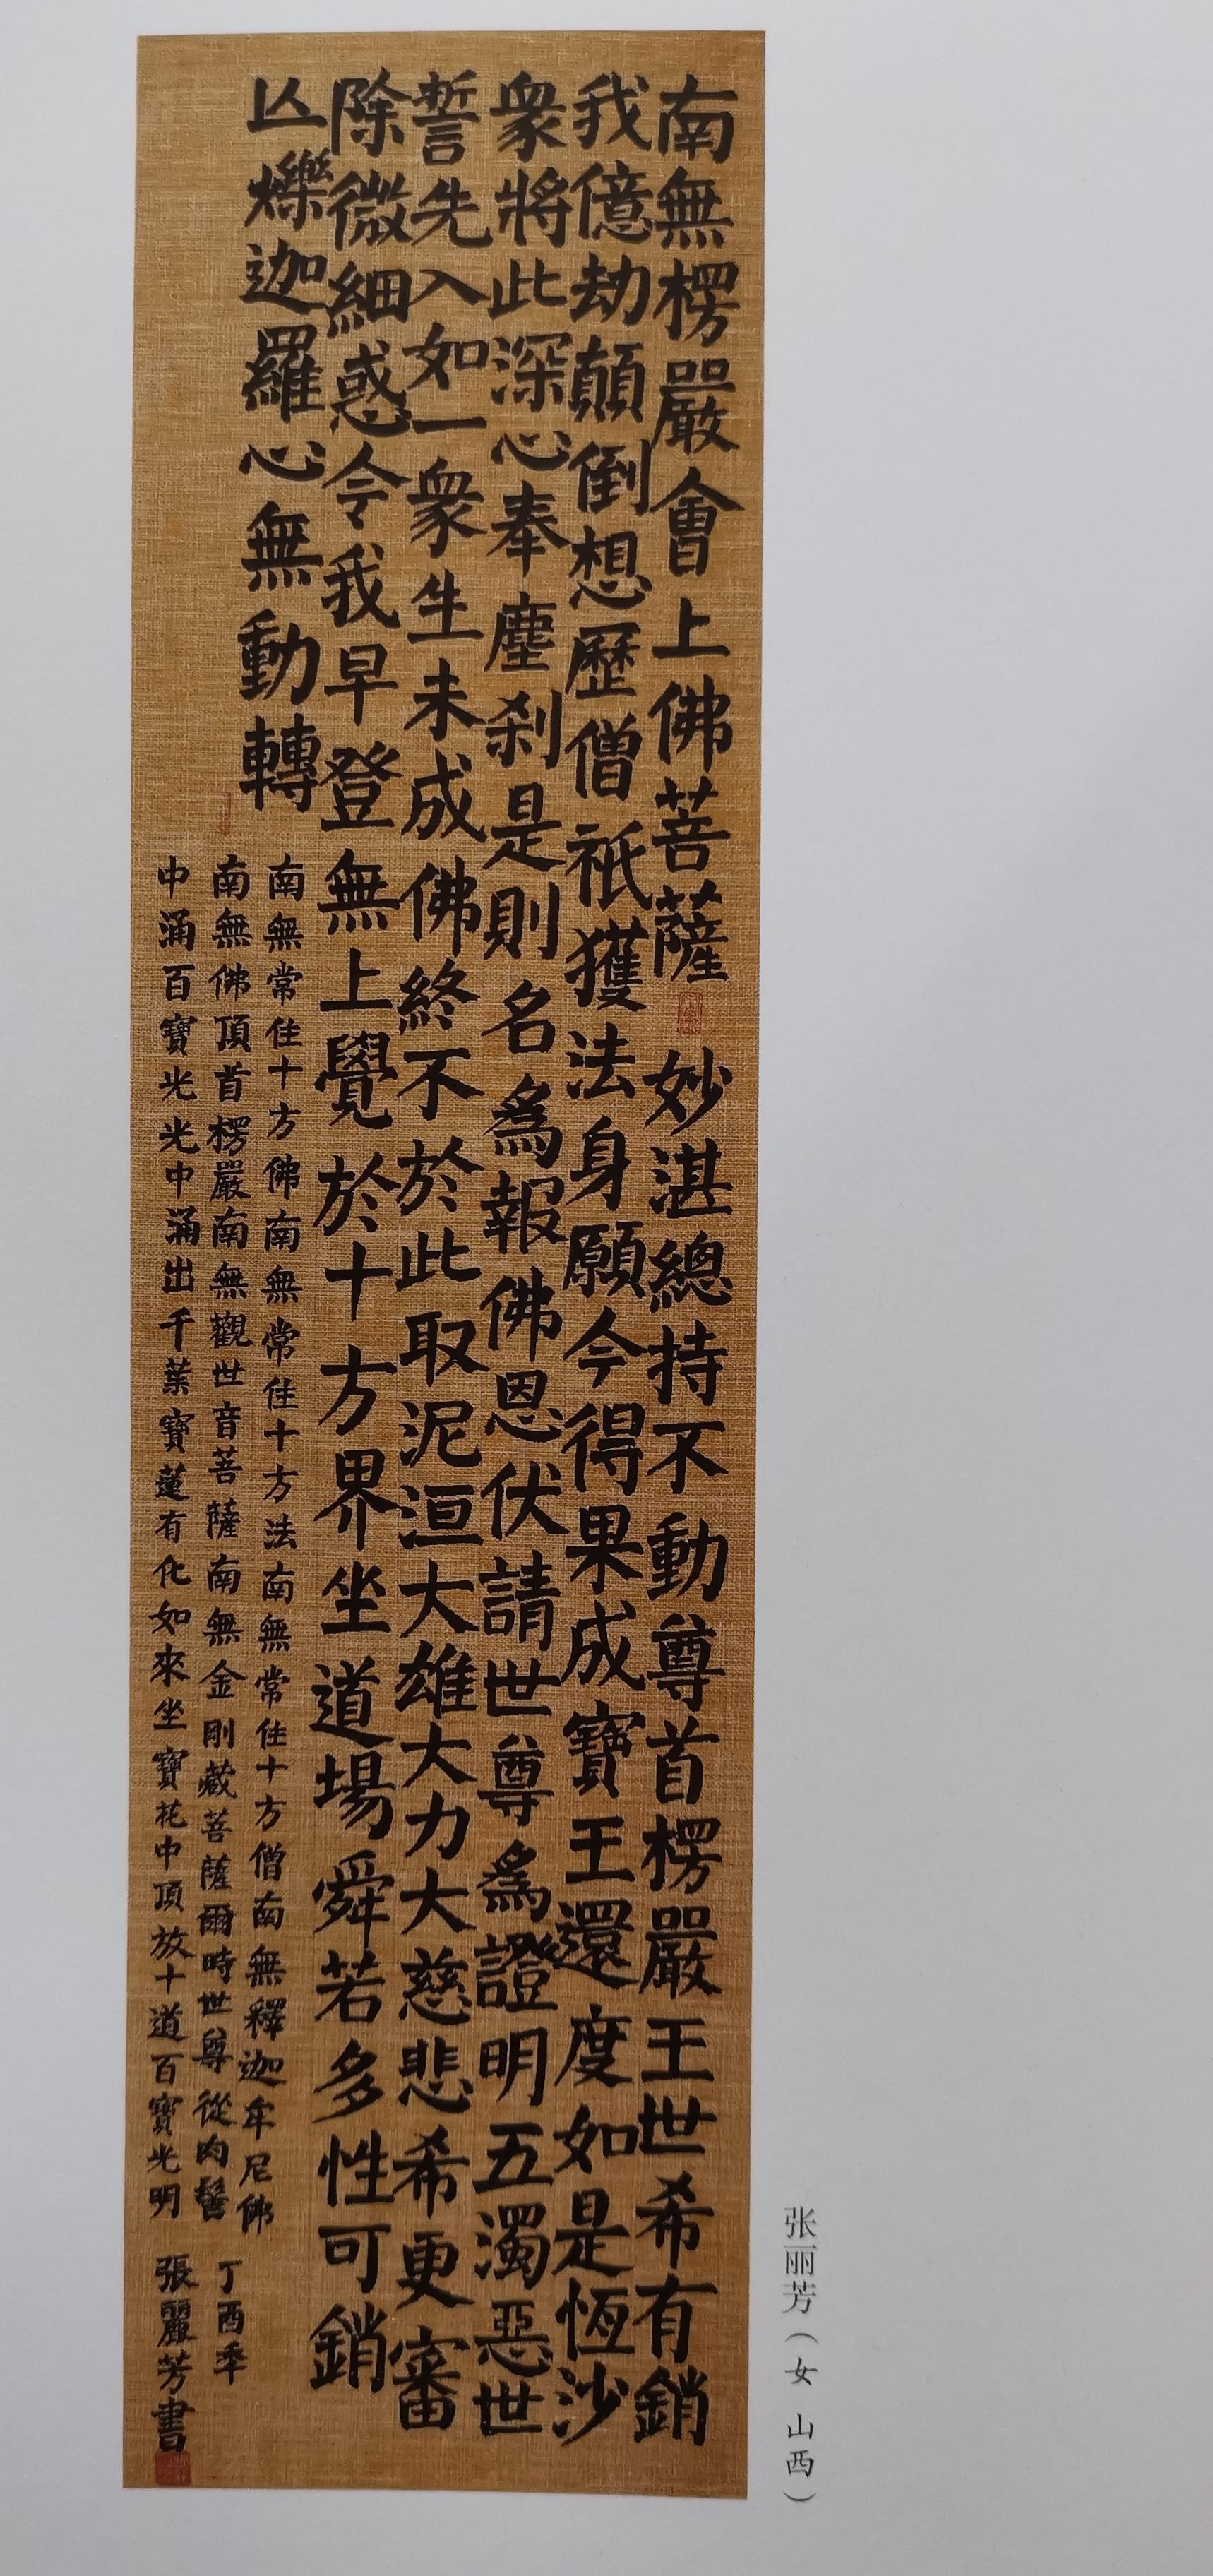 南無楞嚴會上佛菩薩 妙湛總持不動尊首楞嚴王世希有銷
我億劫顛倒想歷僧祇獲法身願今得果成寶王還度如是恆沙
衆將此深心奉塵刹是則名為報佛恩伏請世尊為證明五濁惡世
誓先入如一衆生未成佛終不於此取泥洹大雄大力大慈悲希更審
除微細惑令我早登無上覺於十方界坐道場舜若多性可銷
亾爍迦羅心無動轉
南無常住十方佛南無常住十方法南無常住十方僧南無釋迦牟尼佛
南無佛頂首楞嚴南無觀世音菩薩南無金剛藏菩薩爾時世尊從肉髻
中涌百寶光光中涌出千葉寶蓮有化如來坐寶花中頂放十道百寶光明
丁酉年
張麗芳書
张丽芳（女 山西）